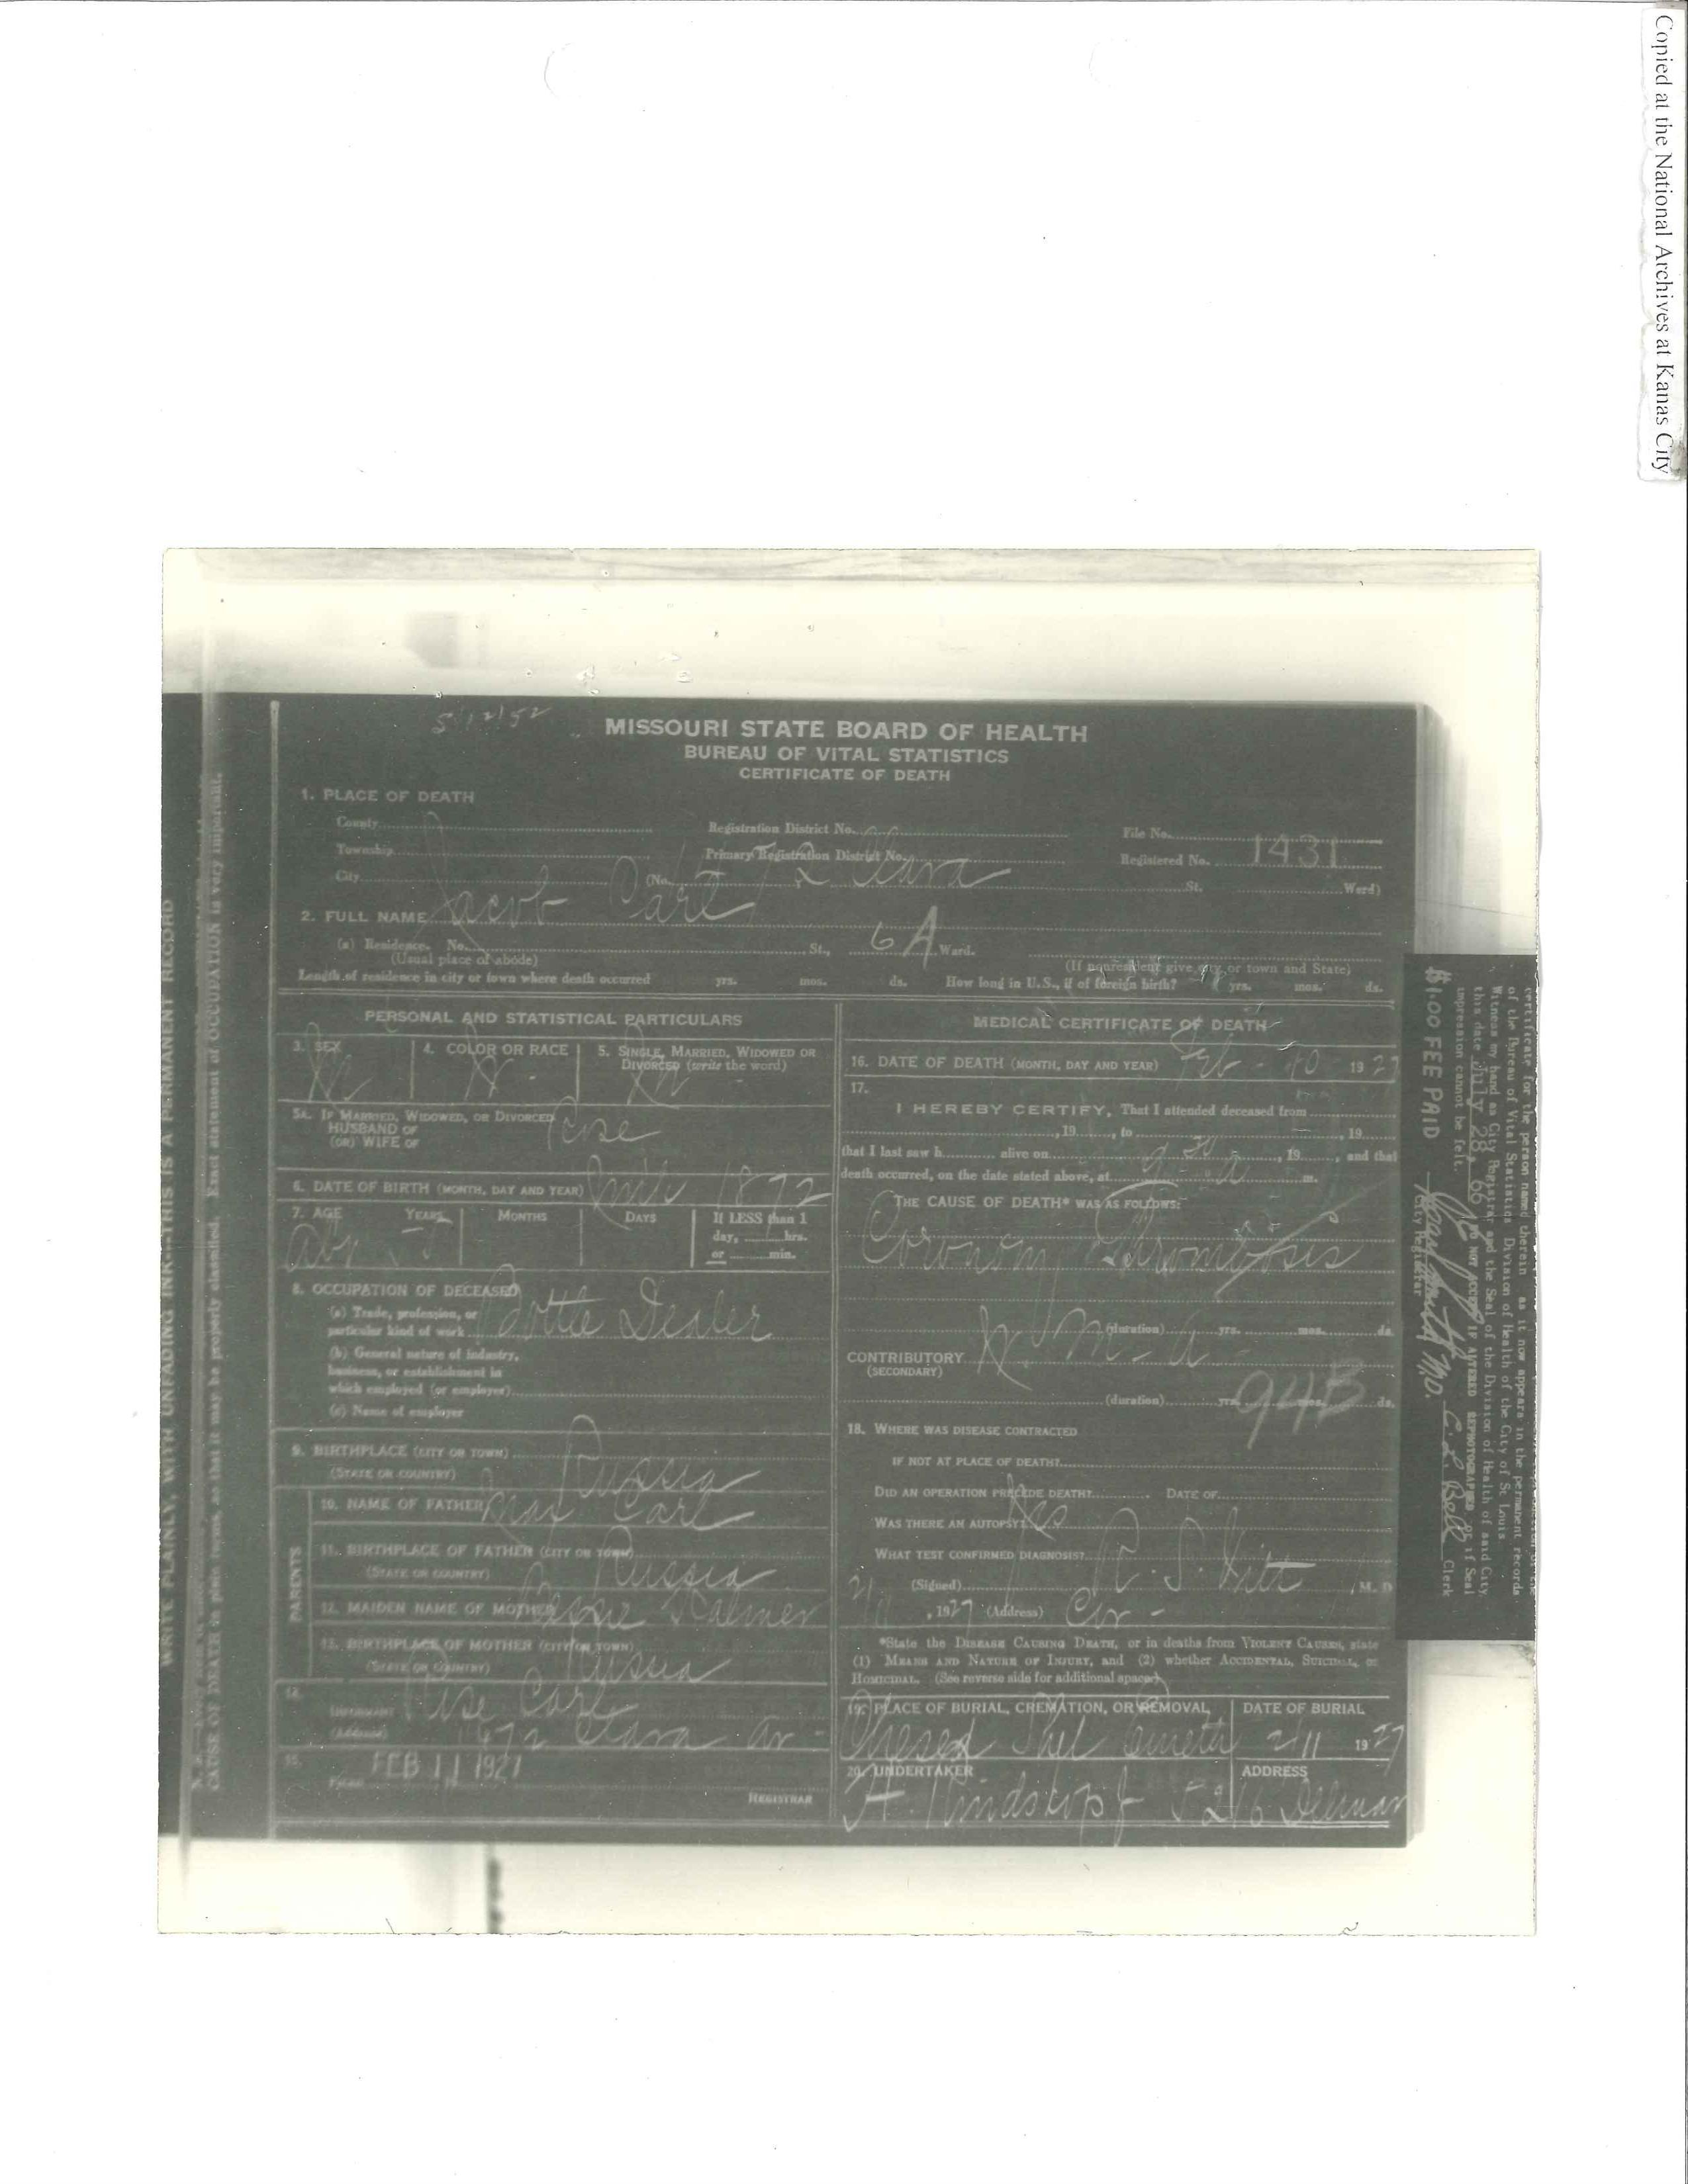 Copied at the National Archives at Kanas City
5/12/52
MISSOURI STATE BOARD OF HEALTH
BUREAU OF VITAL STATISTICS
CERTIFICATE OF DEATH
1. PLACE OF DEATH
County
Registration District No.
File No.
Township
Primary Registration District No.
Registered No. 1431
City
(No. Clara
St.
Ward)
2. FULL NAME Jacob Carl
(a) Residence. No.
St., 6 A Ward.
(Usual place of abode)
(If nonresident give city or town and State)
Length of residence in city or town where death occurred yrs. mos. ds. How long in U.S., if of foreign birth? yrs. mos. ds.
PERSONAL AND STATISTICAL PARTICULARS
3. SEX
4. COLOR OR RACE
5. SINGLE, MARRIED, WIDOWED OR
DIVORCED (write the word)
M
W -
M -
5A. IF MARRIED, WIDOWED, OR DIVORCED
HUSBAND OF
(OR) WIFE OF
Rose
6. DATE OF BIRTH (MONTH, DAY AND YEAR) 1872
7. AGE YEARS MONTHS DAYS If LESS than 1
day, hrs.
or min.
8. OCCUPATION OF DECEASED
(a) Trade, profession, or
particular kind of work Bottle Dealer
(b) General nature of industry,
business, or establishment in
which employed (or employer)
(c) Name of employer
9. BIRTHPLACE (CITY OR TOWN)
(STATE OR COUNTRY) Russia
PARENTS
10. NAME OF FATHER Max Carl
11. BIRTHPLACE OF FATHER (CITY OR TOWN)
(STATE OR COUNTRY) Russia
12. MAIDEN NAME OF MOTHER
13. BIRTHPLACE OF MOTHER (CITY OR TOWN)
(STATE OR COUNTRY) Russia
14.
INFORMANT Rose Carl
(Address) Clara av -
15.
FILED FEB 11 1927
REGISTRAR
MEDICAL CERTIFICATE OF DEATH
16. DATE OF DEATH (MONTH, DAY AND YEAR) Feb - 10 1927
17.
I HEREBY CERTIFY, That I attended deceased from
, 19 , to , 19
that I last saw h alive on , 19 , and that
death occurred, on the date stated above, at 9 30 a m.
THE CAUSE OF DEATH* WAS AS FOLLOWS:
Coronary Thrombosis
(duration) yrs. mos. ds.
CONTRIBUTORY
(SECONDARY)
(duration) yrs. mos. ds.
94B
18. WHERE WAS DISEASE CONTRACTED
IF NOT AT PLACE OF DEATH?
DID AN OPERATION PRECEDE DEATH? DATE OF
WAS THERE AN AUTOPSY?
WHAT TEST CONFIRMED DIAGNOSIS?
(Signed) M. D
, 1927 (Address)
*State the DISEASE CAUSING DEATH, or in deaths from VIOLENT CAUSES, state
(1) MEANS AND NATURE OF INJURY, and (2) whether ACCIDENTAL, SUICIDAL, or
HOMICIDAL. (See reverse side for additional space)
19. PLACE OF BURIAL, CREMATION, OR REMOVAL
DATE OF BURIAL
Chesed Shel Emeth
2/11 1927
20. UNDERTAKER
ADDRESS
H. Rindskopf
5216 Delmar
WRITE PLAINLY, WITH UNFADING INK--THIS IS A PERMANENT RECORD
CAUSE OF DEATH in plain terms, so that it may be properly classified. Exact statement of OCCUPATION is very important.
certificate for the person named therein as it now appears in the permanent records
of the Bureau of Vital Statistics Division of Health of the City of St Louis
Witness my hand as City Registrar and the Seal of the Division of Health of said City,
this date July 28, 66 DO NOT ACCEPT IF ALTERED REPHOTOGRAPHED or if Seal
impression cannot be felt.
City Registrar
C. L. Bell Clerk
$1.00 FEE PAID